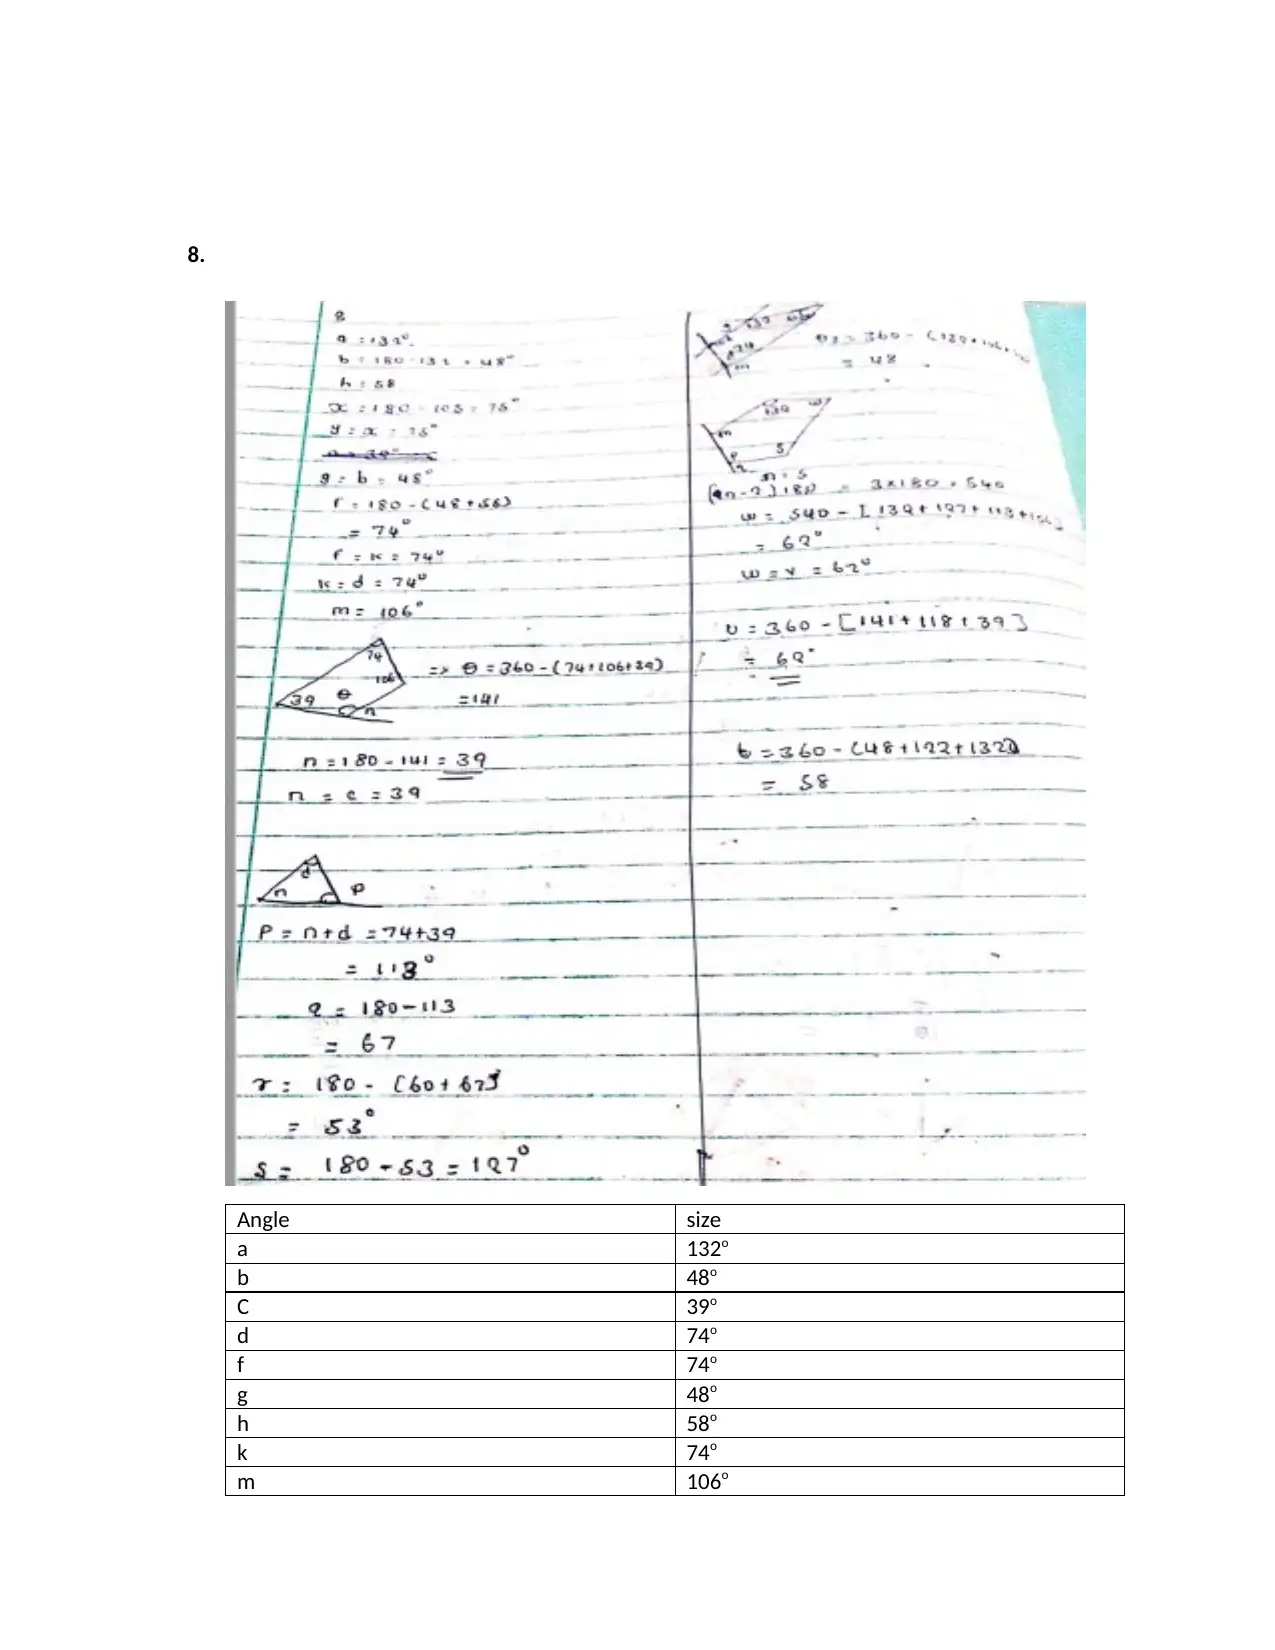 8.
8
a = 132°
b = 180 - 132 = 48°
h = 58
x = 180 - 105 = 75°
y = x = 75°
g = b = 48°
f = 180 - (48+58)
= 74°
f = k = 74°
k = d = 74°
m = 106°
74
106
39 θ n
=> θ = 360 - (74+106+39)
= 141
n = 180 - 141 = 39
n = c = 39
d
n P
P = n+d = 74+39
= 113°
q = 180-113
= 67
r = 180 - [60+67]
= 53°
s = 180 - 53 = 127°
74
m
= 360 -
= 48
w
m
P S
n = 5
180 = 3×180 = 540
w = 540 - [139+127+113+106]
= 62°
w = v = 62°
v = 360 - [141+118+39]
= 62°
t = 360 - (48+122+132)
= 58
Angle size
a 132º
b 48º
C 39º
d 74º
f 74º
g 48º
h 58º
k 74º
m 106º